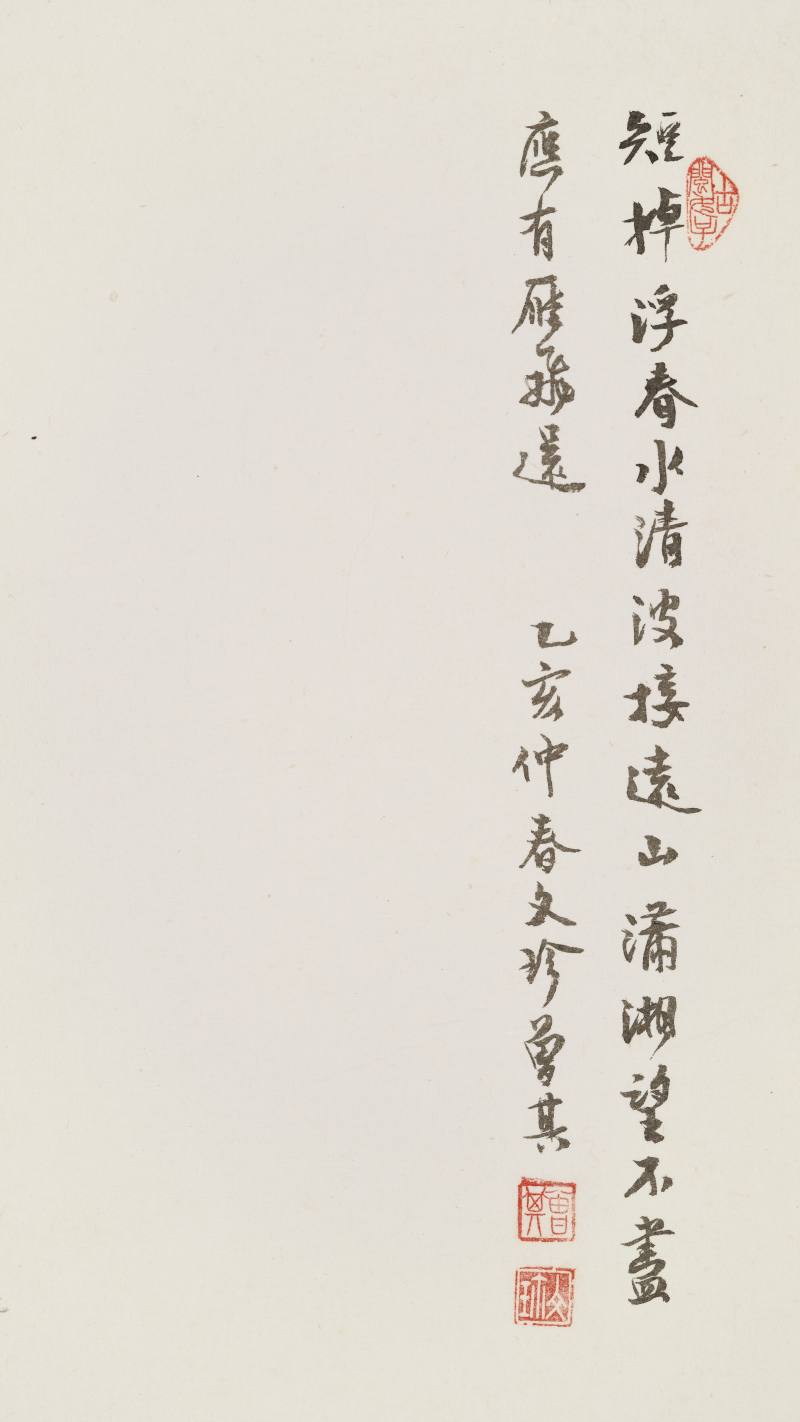 短棹浮春水清波接遠山瀟湘望不盡
應有雁飛還 乙亥仲春文珍曾其
曾其
文珍